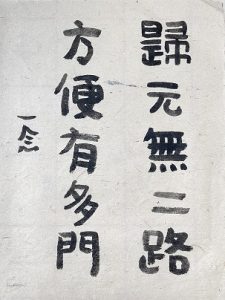 歸元無二路
方便有多門
一念